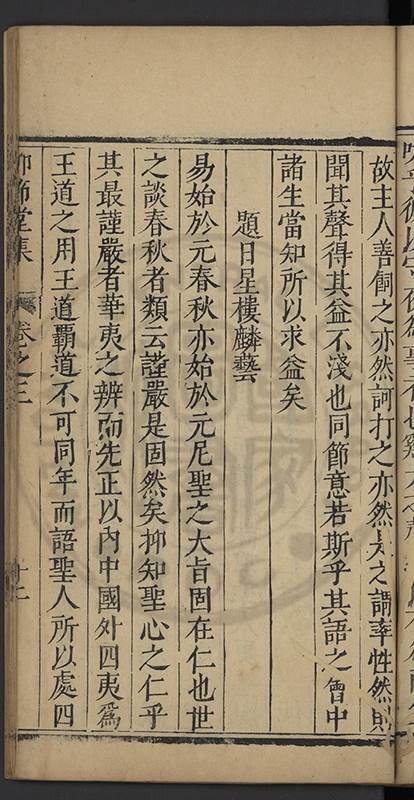 故主人善飼之亦然訶打之亦然夫之謂率性然則
聞其聲得其益不淺也同節意若斯乎其語之會中
諸生當知所以求益矣
題日星樓麟藝
易始於元春秋亦始於元尼聖之大旨固在仁也世
之談春秋者類云謹嚴是固然矣抑知聖心之仁乎
其最謹嚴者華夷之辨而先正以內中國外四夷爲
王道之用王道覇道不可同年而語聖人所以處四
仰節堂集 卷之三 十二